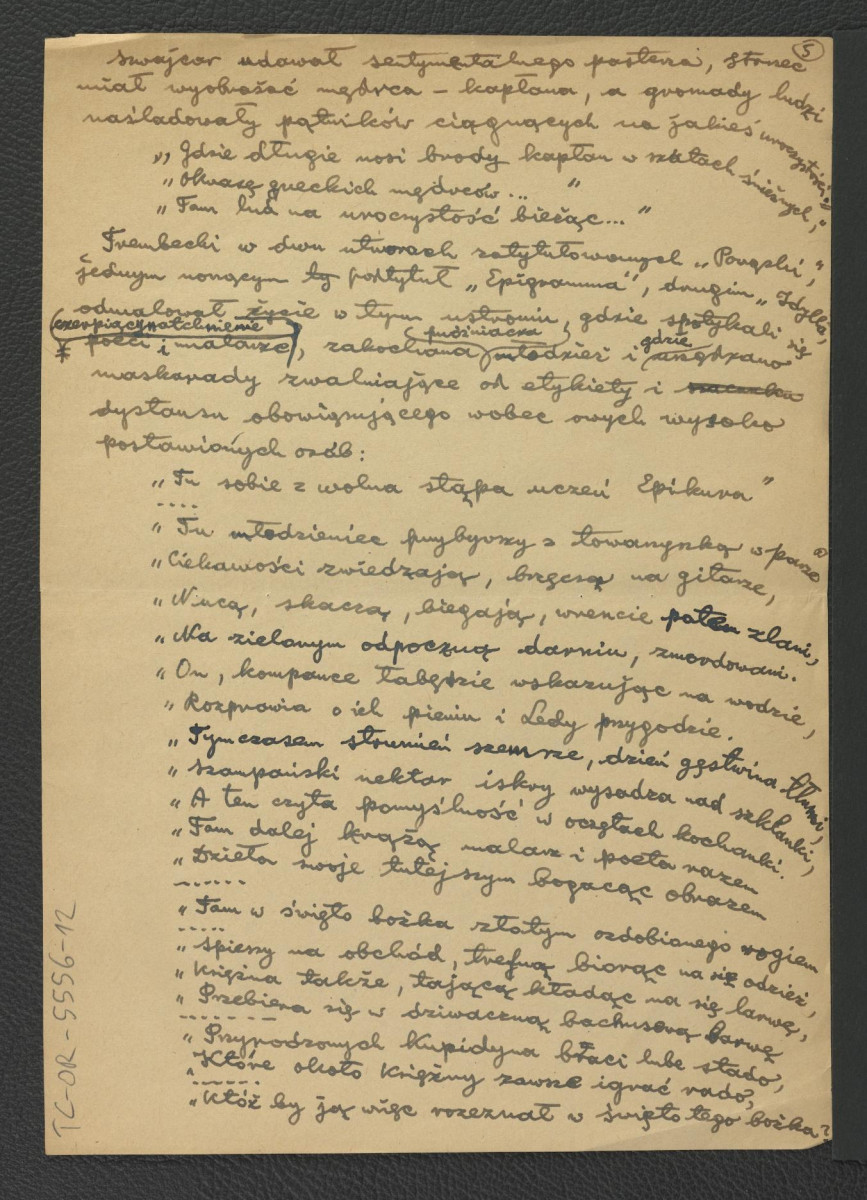 5
szwajcar udawał sentymentalnego pasterza, strzec
miał wyobrażać mędrca – kapłana, a gromady ludzi
naśladowały pątników ciągnących na jakieś uroczystości:
„Gdzie długie nosi brody kapłan w szatach śnieżnych,"
„Okrasę greckich mędrców... "
„Tam lud na uroczystość bieżąc..."
Trembecki w dwu utworach zatytułowanych „Powązki",
jednym noszącym podtytuł „Epigramma", drugim „Idylla",
odmalował życie w tym ustroniu, gdzie spotykali się
czerpiący natchnienie
poeci i malarze, zakochana młodzież i gdzie urządzano
maskarady zwalniające od etykiety i
dystansu obowiązującego wobec owych wysoko
postawionych osób:
„Tu sobie z wolna stąpa uczeń Epikura"
....
„Tu młodzieniec przybywszy z towarzyszką w parze
„Ciekawości zwiedzają, brzęcsą na gitarze,
„Nucą, skaczą, biegają, wreszcie potem zlani,
„Na zielonym odpoczną darniu, zmordowani.
„On, kompance łabędzie wskazując na wodzie,
„Rozprawia o ich pieniu i Ledy przygodzie.
„Tymczasem strumień szemrze, dzień gęstwina tłumi,
„Szampański nektar iskry wysadza nad szklanki,
„A ten czyta pomyślność w oczętach kochanki.
„Tam dalej krążą malarz i poeta razem
„Dzieła swoje tutejszym bogacąc obrazem
......
„Tam w święto bożka złotym ozdobionego rogiem
.....
„Spieszy na obchód, trefną biorąc na się odzież,
„Księżna także, tającą kładąc na się larwę,
„Przebiera się w dziwaczną bachusową barwę
.......
„Przyrodzonych Kupidyna braci lube stado,
„Które około Księżny zawsze igrać rado,
......
„Któż by ją więc rozeznał w święto tego bożka?
TC-OR-5556-12